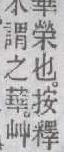 華榮也。按釋
木謂之華。艸